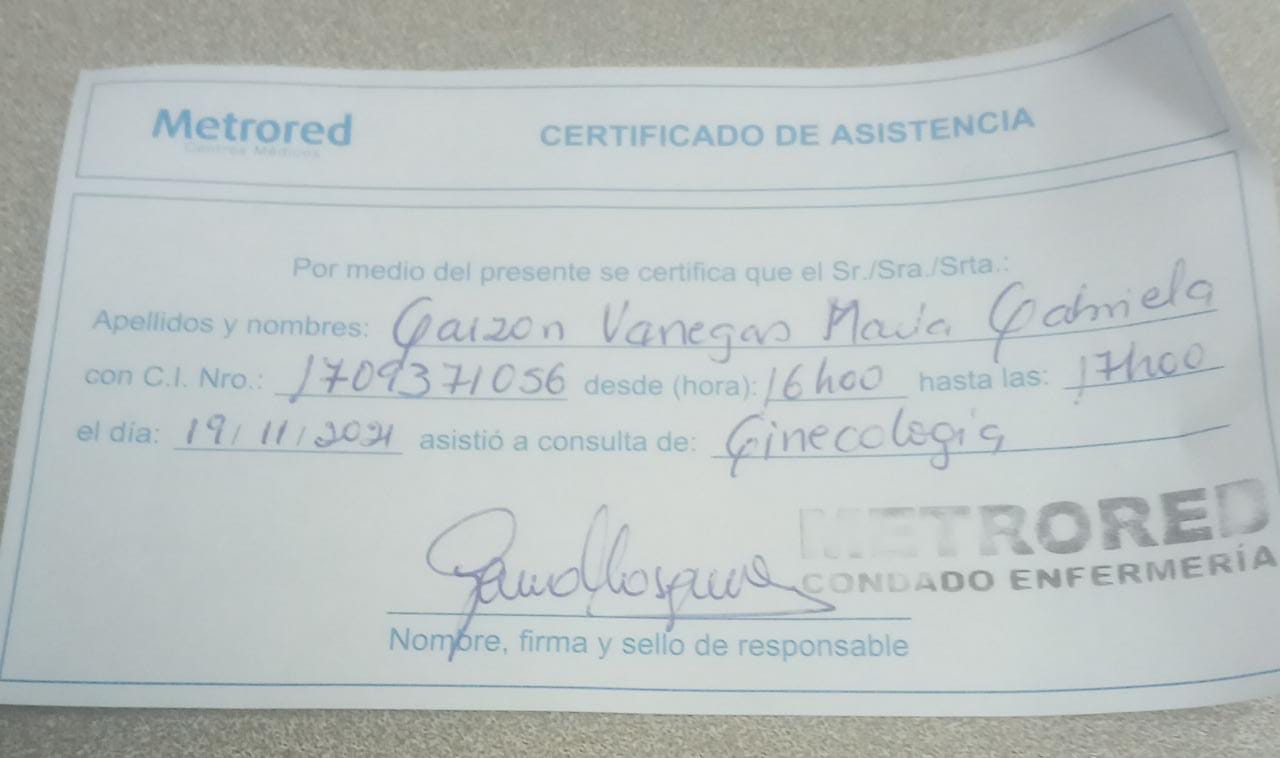 Metrored
Centros Médicos
CERTIFICADO DE ASISTENCIA
Por medio del presente se certifica que el Sr./Sra./Srta.:
Apellidos y nombres: Garzon Vanegas Maria Gabriela
con C.I. Nro.: 1709371056 desde (hora): 16h00 hasta las: 17h00
el día: 19/11/2021 asistió a consulta de: Ginecologia
METRORED
CONDADO ENFERMERÍA
Nombre, firma y sello de responsable